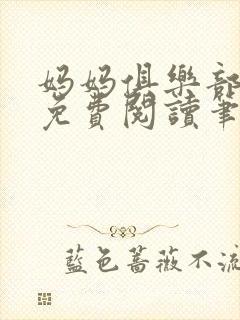 媽媽俱樂部
免費閱讀筆
藍色薔薇不流